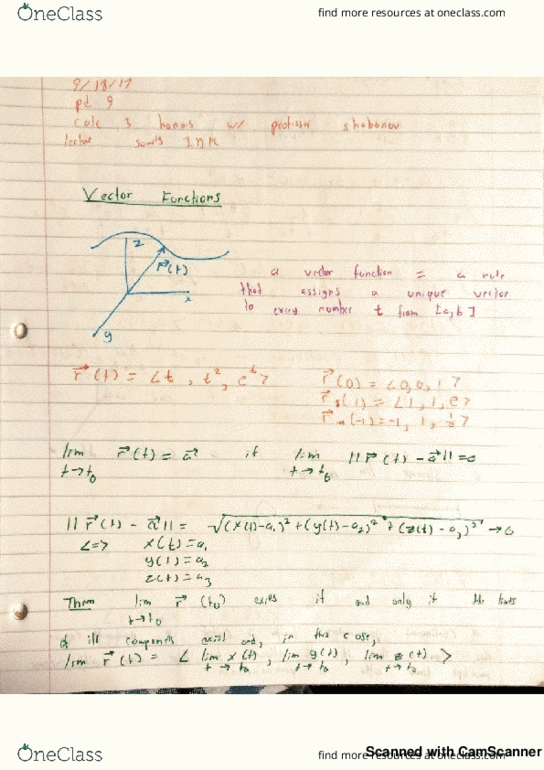 OneClass
find more resources at oneclass.com
9/18/17
pd 9
calc 3 honors w/ professor shabanov
lecture
Vector Functions
z
r⃗(t)
x
y
a vector function = a rule
that assigns a unique vector
to every number t from [a,b]
r⃗(t) = <t, t², e^t>
r⃗(0) = <0,0,1>
r⃗(1) = <1, 1, e>
r⃗(-1) = -1, 1, 1/e>
lim r⃗(t) = a⃗ if lim ||r⃗(t) - a⃗|| = 0
t→t₀ t→t₀
||r⃗(t) - a⃗|| = √(x(t)-a₁)² + (y(t)-a₂)² + (z(t)-a₃)² → 0
<=> x(t)=a₁
y(t)=a₂
z(t)=a₃
Thm lim r⃗(t₀) exists if and only if the limits
t→t₀
of all components exist and, in this case,
lim r⃗(t) = < lim x(t), lim y(t), lim z(t) >
t→t₀ t→t₀ t→t₀
OneClass
find more resources at oneclass.com
Scanned with CamScanner